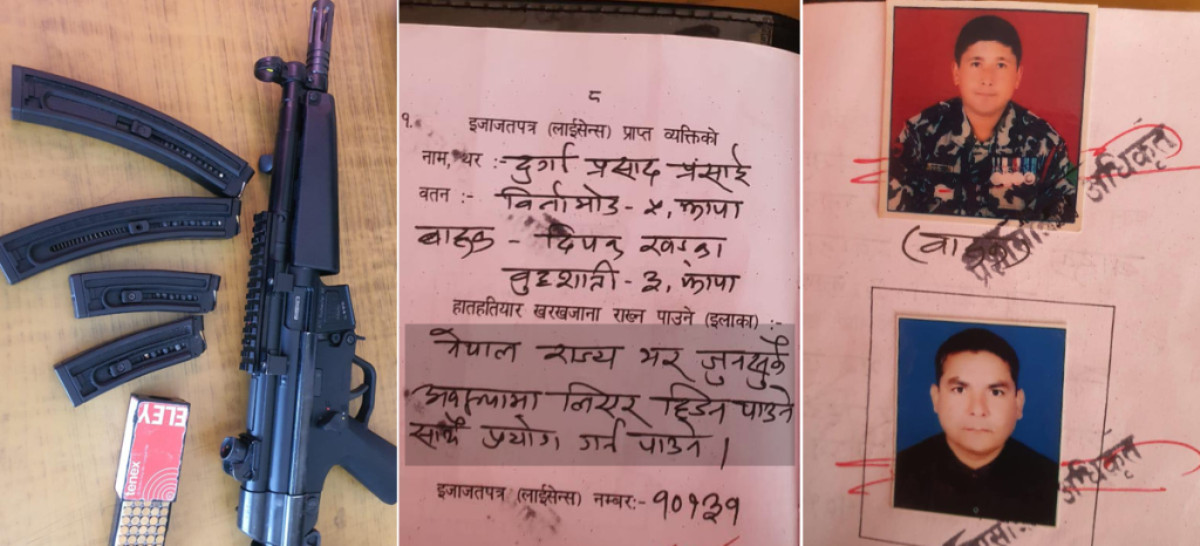 ELEY
tenex
८
१. इजाजतपत्र (लाईसेन्स) प्राप्त व्यक्तिको
नाम, थर :- दुर्गा प्रसाद प्रसाई
वतन :- विर्तामोड - ५, झापा
बाहक - दिपक खड्का
बुद्दशान्ती - ३, झापा
हातहतियार खरखजाना राख्न पाउने (इलाका) :-
नेपाल राज्य भर जुनसुकै
अवस्थामा लिएर हिडन पाउने
साथै प्रयोग गर्न पाउने ।
इजाजतपत्र (लाईसेन्स) नम्बर:- १०१३१
अधिकृत
अधिकृत